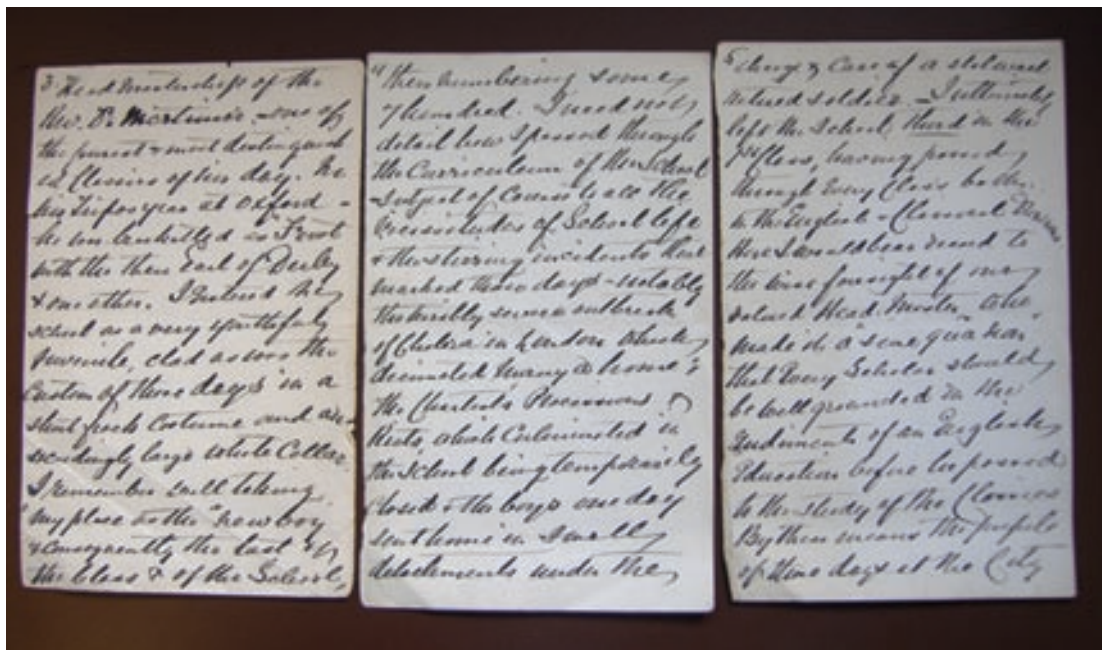 3 Head Mastership of the
Rev. Dr. Mortimer - one of
the purest & most distinguish
ed Classics of his day. In
his Tripos year at Oxford -
he was bracketted as First
with the then Earl of Derby
& another. I entered the
school as a very youthful
juvenile, clad as was the
Custom of those days in a
short frock costume and an ex-
ceedingly large white Collar
I remember well taking
my place as the "new boy
& consequently the last of
the Class & of the School,
4 then numbering some
7 hundred. I need not
detail how I passed through
the Curriculum of the School
- subject of course to all the
vicissitudes of School life
& the stirring incidents that
marked those days - notably
the terribly severe outbreak
of Cholera in London which
decimated many a home;
the Chartists Processions &
Riots, which Culminated in
the School being temporarily
closed & the boys one day
sent home in small
detachments under the
5 charge & care of a stalwart
retired soldier. - I ultimately
left the School, third in the
class, having passed
through Every Class both
in the English & Classical
Here I would bear record to
the wise foresight of our
Head Master who
made it a sine qua non
that Every Scholar should
be well grounded in the
rudiments of an English
Education before he passed
to the study of the Classics
By these means the pupils
of those days at the City